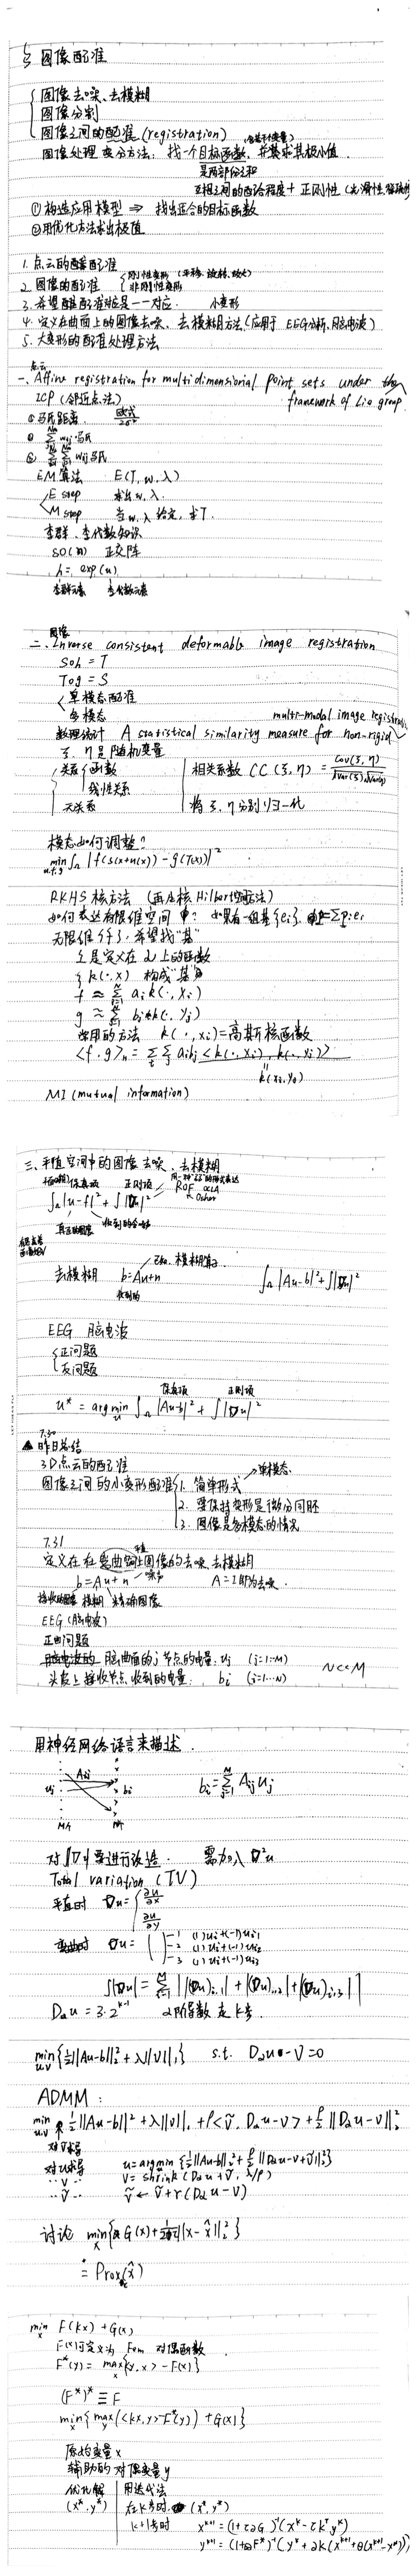 图像配准
图像去噪、去模糊
图像分割
图像之间的配准 (registration)
图像处理 变分方法: 找一个目标函数, 并求其极小值
是两部分之和
互相之间的匹配程度 + 正则性
① 构造应用模型 ⇒ 找出适合的目标函数
② 用优化方法求出极值
1. 点云的配准
2. 图像的配准 刚性变形 (平移、旋转、放大)
非刚性变形
3. 希望配准对应是一一对应. 小变形
4. 定义在曲面上的图像去噪、去模糊方法 (应用于 EEG分析、脑电波)
5. 大变形的配准处理方法
点云
一、Affine registration for multidimensional point sets under the
framework of Lie group
ICP (邻近点法)
EM 算法 E(T, w, λ)
E step 求出 w, λ.
M step 当 w, λ 给定, 求T.
李群、李代数知识
SO(n) 正交阵
h = exp(u)
李群元素 李代数元素
图像
二、Inverse consistent deformable image registration
S∘h = T
T∘g = S
单模态配准
多模态 multi-modal image registration
数理统计 A statistical similarity measure for non-rigid
ξ, η是随机变量
关系 函数
线性关系
无关系
相关系数 CC(ξ, η) = Cov(ξ, η) / √Var(ξ)√Var(η)
将 ξ, η 分别归一化
模态如何调整?
min ∫Ω |f(S(x+u(x))) - g(T(x))|²
u,f,g
RKHS 核方法 (再生核Hilbert空间方法)
无限维 {f}, 希望找"基"
Σ是定义在Ω上的函数
{k(·, x)} 构成"基"
f ≈ Σ aᵢ k(·, xᵢ)
g ≈ Σ bⱼ k(·, yⱼ)
常用的方法 k(·, xᵢ) = 高斯核函数
<f, g> = Σ Σ aᵢbⱼ <k(·, xᵢ), k(·, yⱼ)>
MI (mutual information)
三、平直空间中的图像去噪、去模糊
保真项 正则项 ROF UCLA
Osher
∫Ω |u-f|² + ∫|∇u|²
真正的图像 收到的
去模糊 b = Au+n 模糊算子
收到的
∫Ω |Au-b|² + ∫|∇u|²
EEG 脑电波
正问题
反问题
保真项 正则项
u* = argmin ∫Ω |Au-b|² + ∫|∇u|²
u
7.30
▲ 昨日总结
3D点云的配准
图像之间的小变形配准 1. 简单形式 → 单模态
2. 要保持变形是微分同胚
3. 图像是多模态的情况
7.31
定义在弯曲空间上图像的去噪、去模糊
b = Au + n 噪声 A = I 即为去噪.
接收的图像 模糊 精确图像
EEG (脑电波)
正向问题
脑曲面的 j 节点的电量: uⱼ (j=1…M)
头皮上接收节点收到的电量: bᵢ (i=1…N) N<<M
用神经网络语言来描述.
Aij
uj bi
bᵢ = Σ Aᵢⱼ uⱼ
对 |∇u| 要进行改造. 需加入 ∇²u
Total variation (TV)
平直时 ∇u = ∂u/∂x
∂u/∂y
弯曲时 ∇u =
-1 (1)uᵢ+(-1)uᵢ₁
-2 (1)uᵢ+(-1)uᵢ₂
-3 (1)uᵢ+(-1)uᵢ₃
∫|∇u| = Σ | |(∇u)ᵢ,₁| + |(∇u)ᵢ,₂| + |(∇u)ᵢ,₃| |
min {½||Au-b||²₂ + λ||V||₁} s.t. Dₐu - V = 0
u,v
ADMM:
min ½||Au-b||² + λ||V||₁ + ρ<Ṽ, Dₐu-V> + ρ/2 ||Dₐu-V||²₂
u,v
对u求导 u = argmin {½||Au-b||²₂ + ρ/2 ||Dₐu-V+Ṽ||²₂}
‥ V ‥ V = shrink(Dₐu+Ṽ, λ/ρ)
‥ Ṽ ‥ Ṽ ← Ṽ+γ(Dₐu-V)
讨论 min {G(x) + ||x-x̂||²₂}
x
≐ Prox(x̂)
min F(Kx) + G(x)
x
F(x)可定义为 对偶函数.
F*(y) = max {<y, x> - F(x)}
x
(F*)* ≡ F
min { max (<Kx, y> - F*(y)) + G(x)}
x y
原始变量 x
辅助的对偶变量 y
优化解 用迭代法
(x*, y*) 在k步时 (xᵏ, yᵏ)
k+1步时 xᵏ⁺¹ = (1+τ∂G)⁻¹(xᵏ - τKᵀyᵏ)
yᵏ⁺¹ = (1+∂F*)⁻¹(yᵏ + ∂K(xᵏ⁺¹+θ(xᵏ⁺¹-xᵏ)))